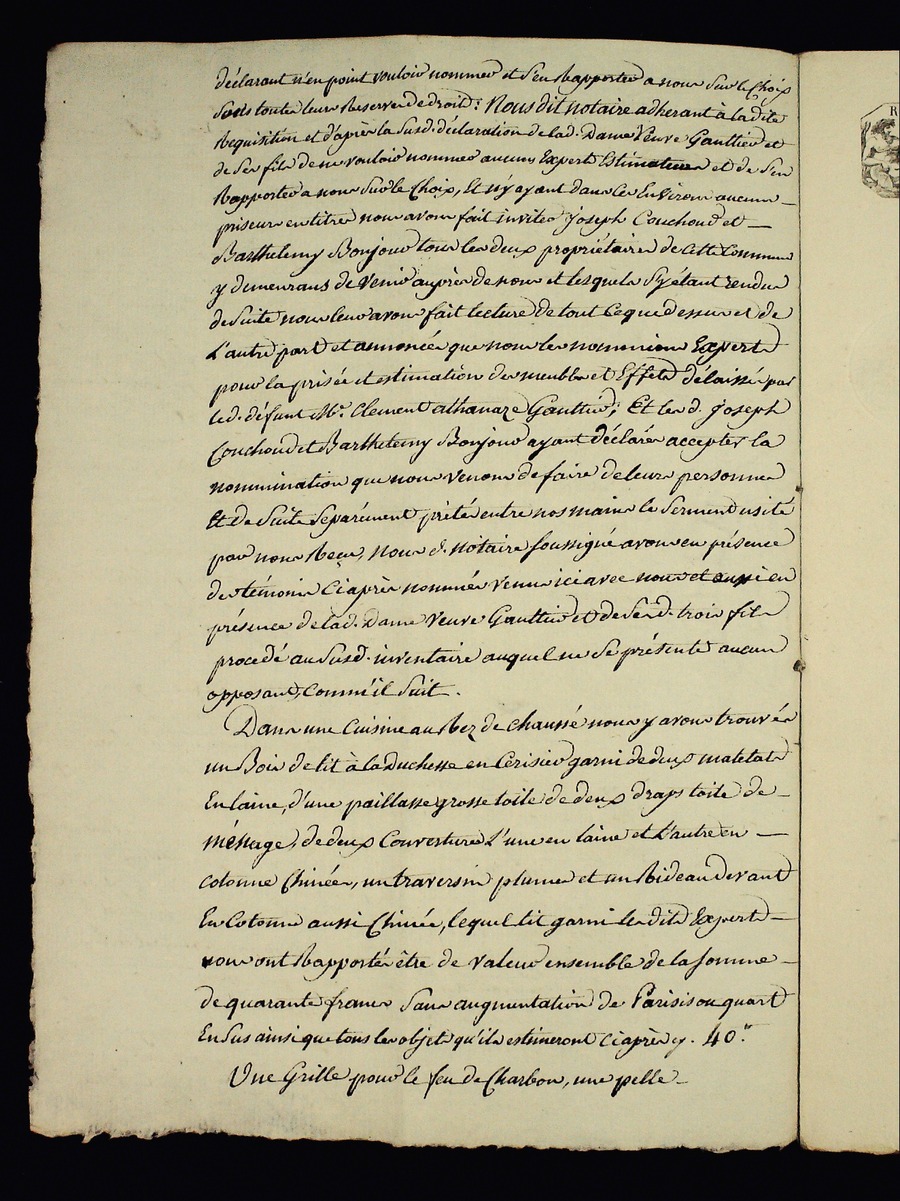 déclarant n'en point vouloir nommer et s'en Rapporter a nous sur le Choix
sous toutes leurs Reserves de droit; Nous dit notaire adherant à la dite
Requisition et d'après la Susd. déclaration de lad. Dame Veuve Gaultier et
de Ses fils de ne vouloir nommer aucuns Expert Estimateurs et de S'en
Rapporter a nous Sur le Choix, Et n'y ayant dans les Environs aucuns
priseurs en titres nous avons fait inviter Joseph Couchoud et
Barthelemy Bonjour tous les deux propriétaires de Cette Commune
y demeurans de Venir auprès de nous et lesquels S'y étant rendus
de Suite nous leur avons fait lecture de tout Ce que dessus et de
L'autre part et annoncée que nous les nommions Experts
pour la prisée et estimation des meubles et Effets délaissés par
led. défunt Mr. Clement athanaze Gaultier; Et les d. Joseph
Couchoud et Barthelemy Bonjour ayant déclarés accepter la
nommination que nous Venons de faire de leurs personnes
Et de Suite Separément prété entre nos mains le Serment usité
par nous Reçu, nous d. notaire soussigné avons en présence
des témoins Ci après nommés Venus ici avec nous et aussi en
présence de lad. Dame Veuve Gaultier et de Sesd. trois fils
procedé au Susd. inventaire auquel ne Se présente aucun
opposant, Comme il Suit.
Dans une Cuisine au Rez de chaussé nous y avons trouvés
un Bois de lit à la Duchesse en Cérisier garni de deux matelats
En laine, d'une paillasse grosse toile de deux draps toile de
ménage, de deux Couvertures L'une en laine et L'autre en
cotonne Chinée, un traversin plumes et un Rideau devant
En Cotonne aussi Chinée, lequel lit garni les dits Experts
nous ont Rapportés être de Valeur ensemble de la somme
de quarante francs Sans augmentation de Parisis ou quart
En Sus ainsi que tous les objets qu'ils estimeront Ci après y. 40."
Une Grille pour le feu de Charbon, une pelle